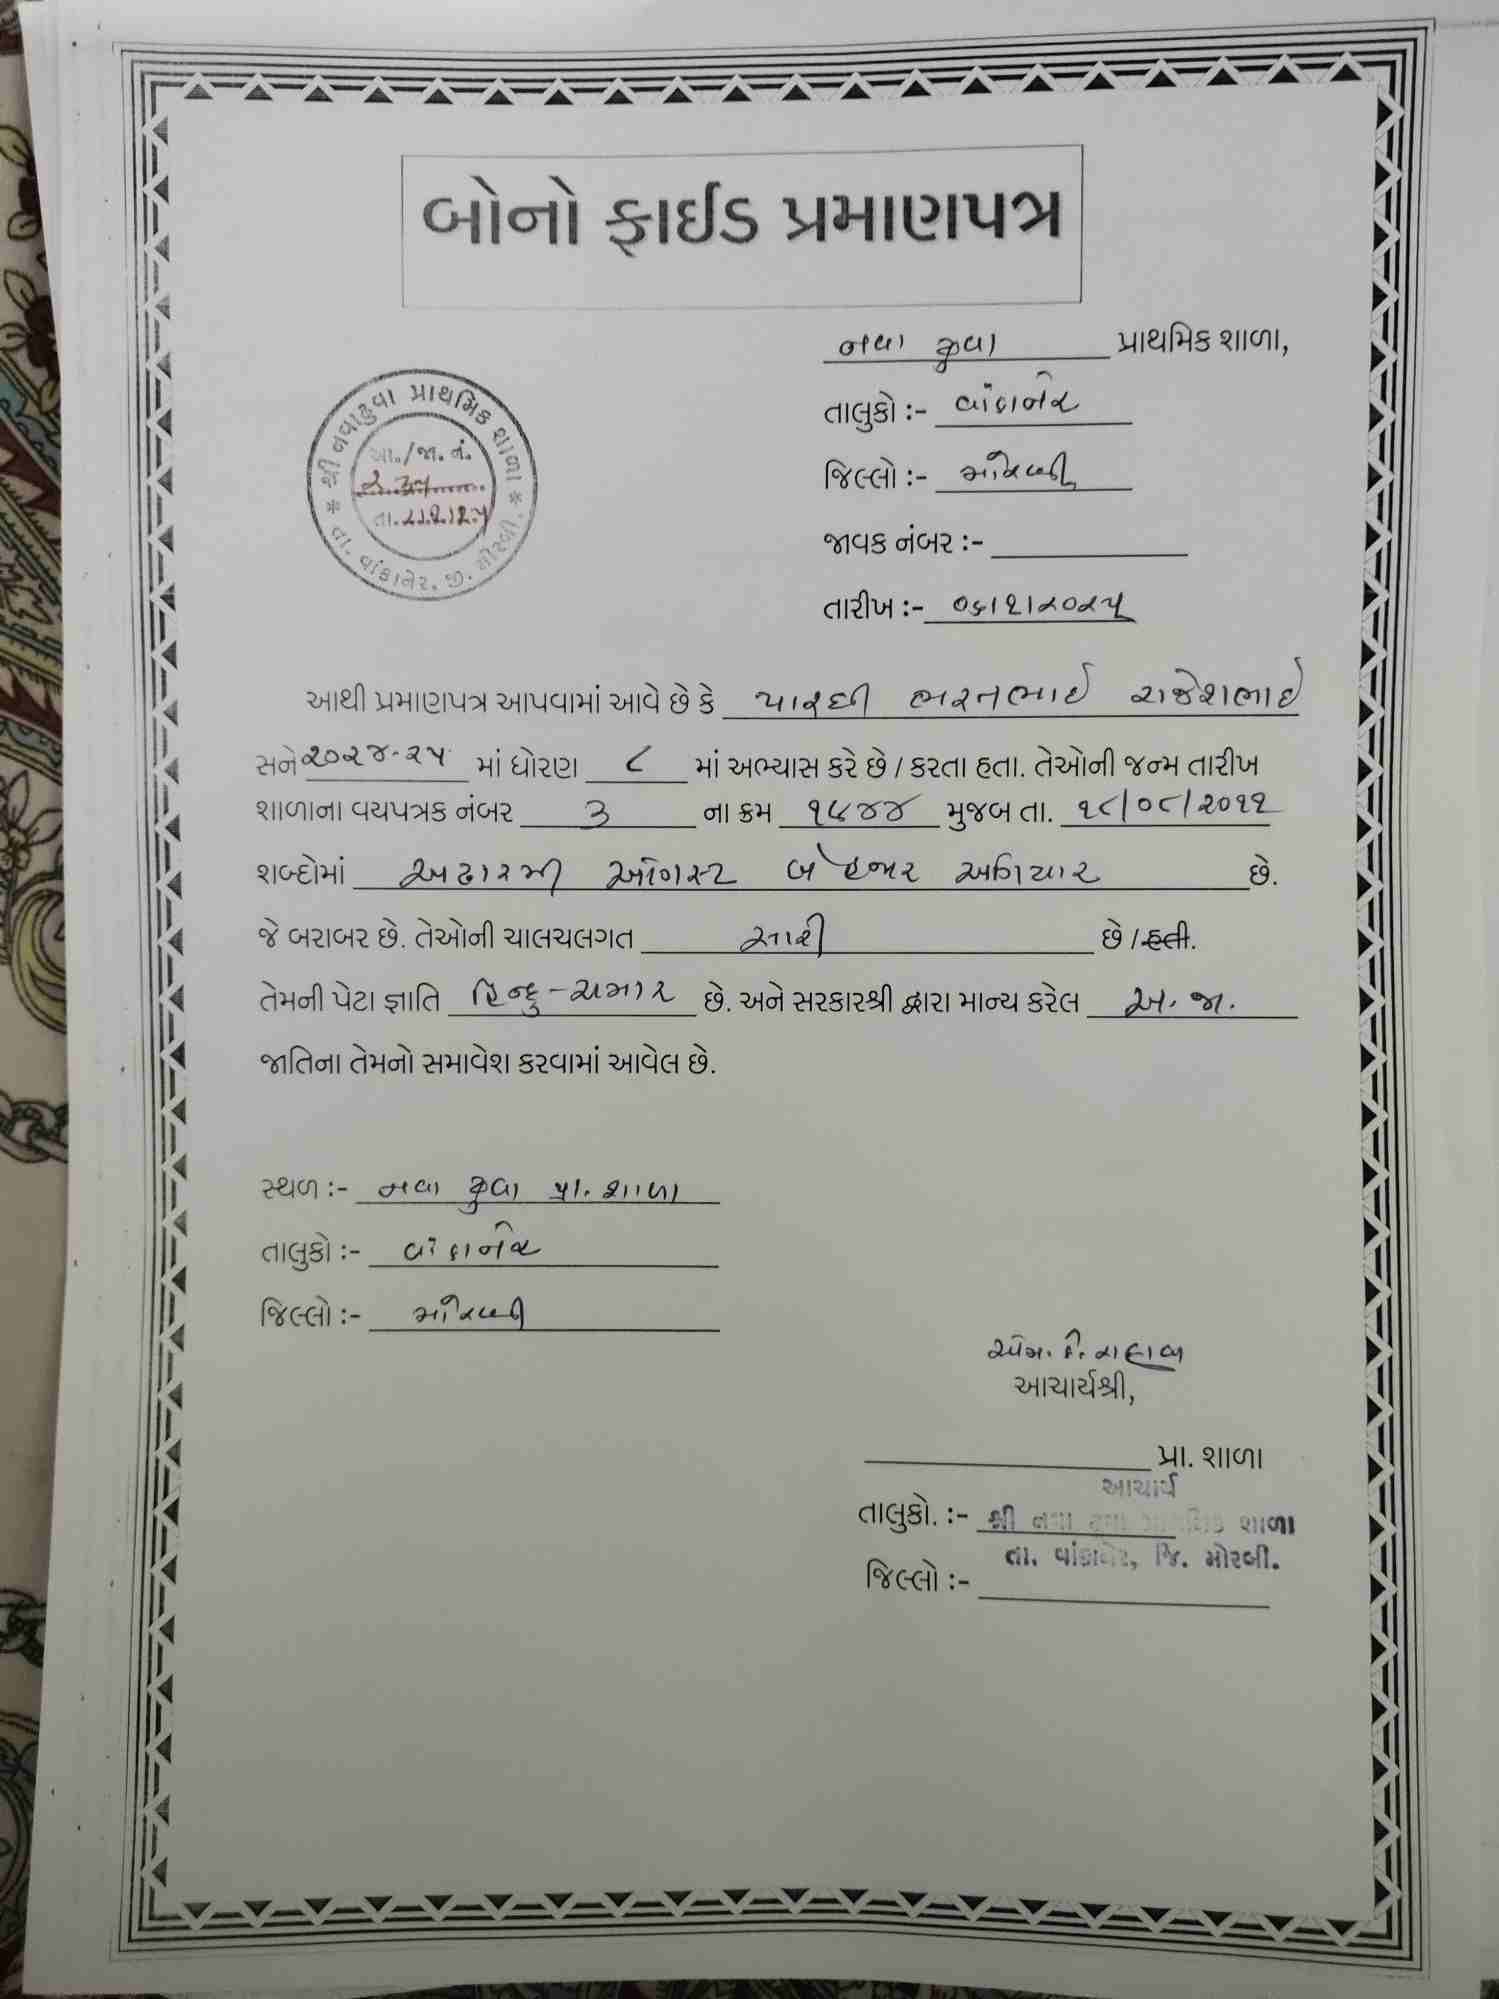 બોનો ફાઈડ પ્રમાણપત્ર
નવા કુવા પ્રાથમિક શાળા,
તાલુકો :- વાંકાનેર
જિલ્લો :- મોરબી
જાવક નંબર :-
તારીખ :- ૦૬/૧/૨૦૨૫
શ્રી નવાકુવા પ્રાથમિક શાળા
આ./જા. નં.
તા.
તા. વાંકાનેર, જી. મોરબી.
આથી પ્રમાણપત્ર આપવામાં આવે છે કે પારઘી ભરતભાઈ રાજેશભાઈ
સને ૨૦૨૪-૨૫ માં ધોરણ ૮ માં અભ્યાસ કરે છે / કરતા હતા. તેઓની જન્મ તારીખ
શાળાના વયપત્રક નંબર ૩ ના ક્રમ ૧૫૪૪ મુજબ તા. ૧૮/૦૮/૨૦૧૧
શબ્દોમાં અઢારમી ઓગસ્ટ બે હજાર અગિયાર છે.
જે બરાબર છે. તેઓની ચાલચલગત સારી છે / હતી.
તેમની પેટા જ્ઞાતિ હિન્દુ - ચમાર છે. અને સરકારશ્રી દ્વારા માન્ય કરેલ અ. જા.
જાતિના તેમનો સમાવેશ કરવામાં આવેલ છે.
સ્થળ :- નવા કુવા પ્રા. શાળા
તાલુકો :- વાંકાનેર
જિલ્લો :- મોરબી
આચાર્યશ્રી,
પ્રા. શાળા
આચાર્ય
તાલુકો. :- શ્રી નવા કુવા પ્રાથમિક શાળા
તા. વાંકાનેર, જિ. મોરબી.
જિલ્લો :-